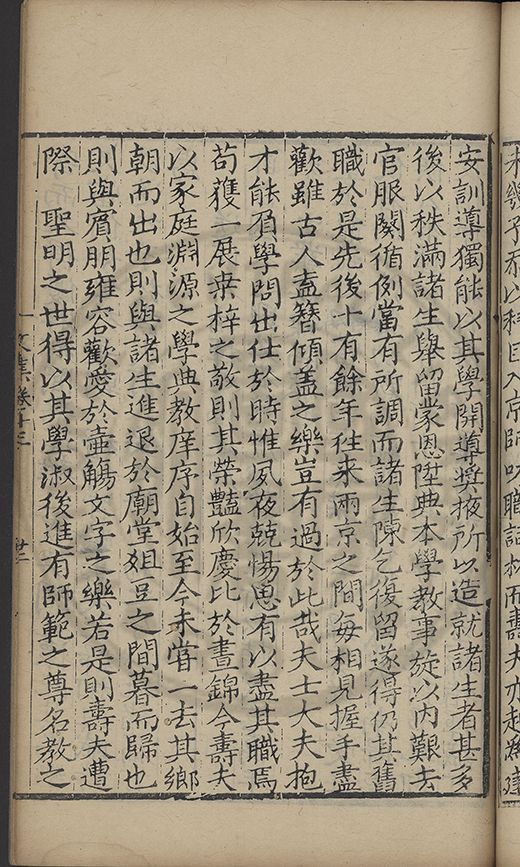 未幾予亦以科目入京師以職詣
而壽夫亦起為建
安訓導獨能以其學開導奬掖所以造就諸生者甚多
後以秩滿諸生舉留蒙恩陞典本學教事旋以內艱去
官服闋循例當有所調而諸生陳乞復留遂得仍其舊
職於是先後十有餘年往来兩京之間每相見握手盡
歡雖古人盍簪傾盖之樂豈有過於此哉夫士大夫抱
才能負學問出仕於時惟夙夜兢惕思有以盡其職焉
苟獲一展桒梓之敬則其榮豔欣慶比於晝錦今壽夫
以家庭淵源之學典教庠序自始至今未甞一去其鄉
朝而出也則與諸生進退於廟堂爼豆之間暮而歸也
則與賓朋雍容歡愛於壺觴文字之樂若是則壽夫遭
際 聖明之世得以其學淑後進有師範之尊名教之
文集卷十三